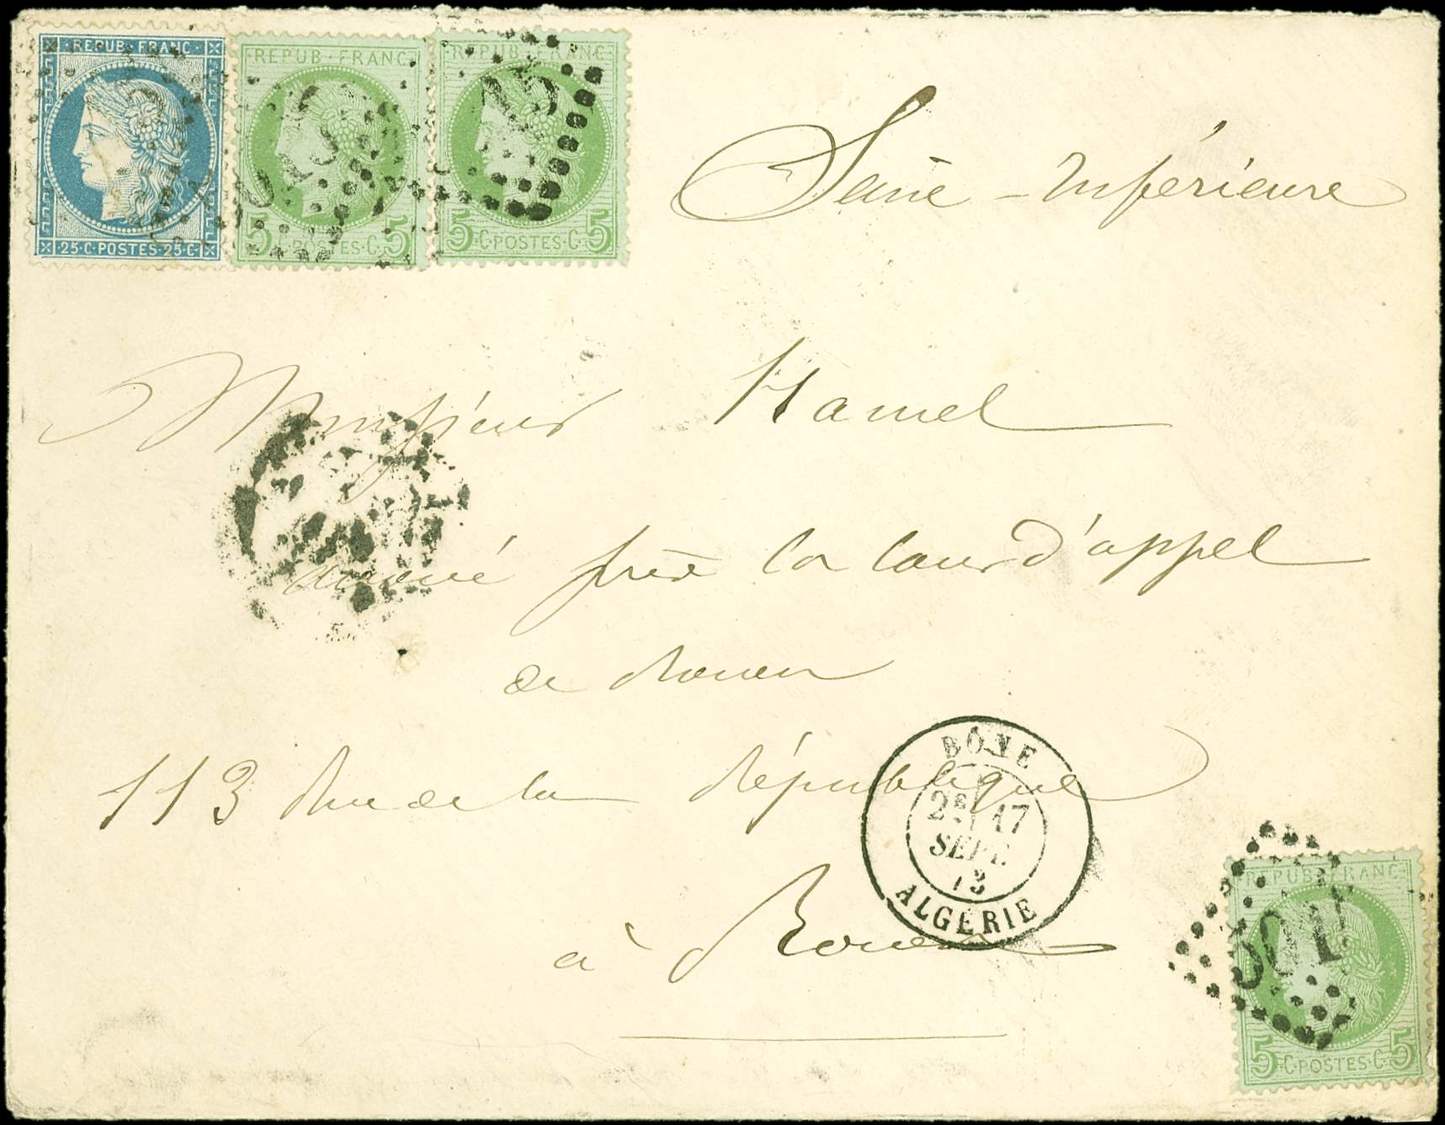 REPUB·FRANC
REPUB·FRANC
REPUB·FRANC
25·C·POSTES·25·C
5·C·POSTES·C·5
5·C·POSTES·C·5
Seine-Inférieure
Monsieur Hamel
avoué près la Cour d'appel
de Rouen
113 Rue de la République
à Rouen
BÔNE
2E 17
SEPT.
73
ALGÉRIE
REPUB·FRANC
5051
5·C·POSTES·C·5